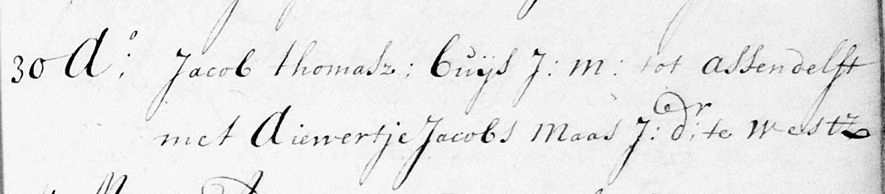 30 d:o Jacob thomasz: Cuijs J: m: tot assendelft
met diewertje Jacobs maas J: dr: te westz